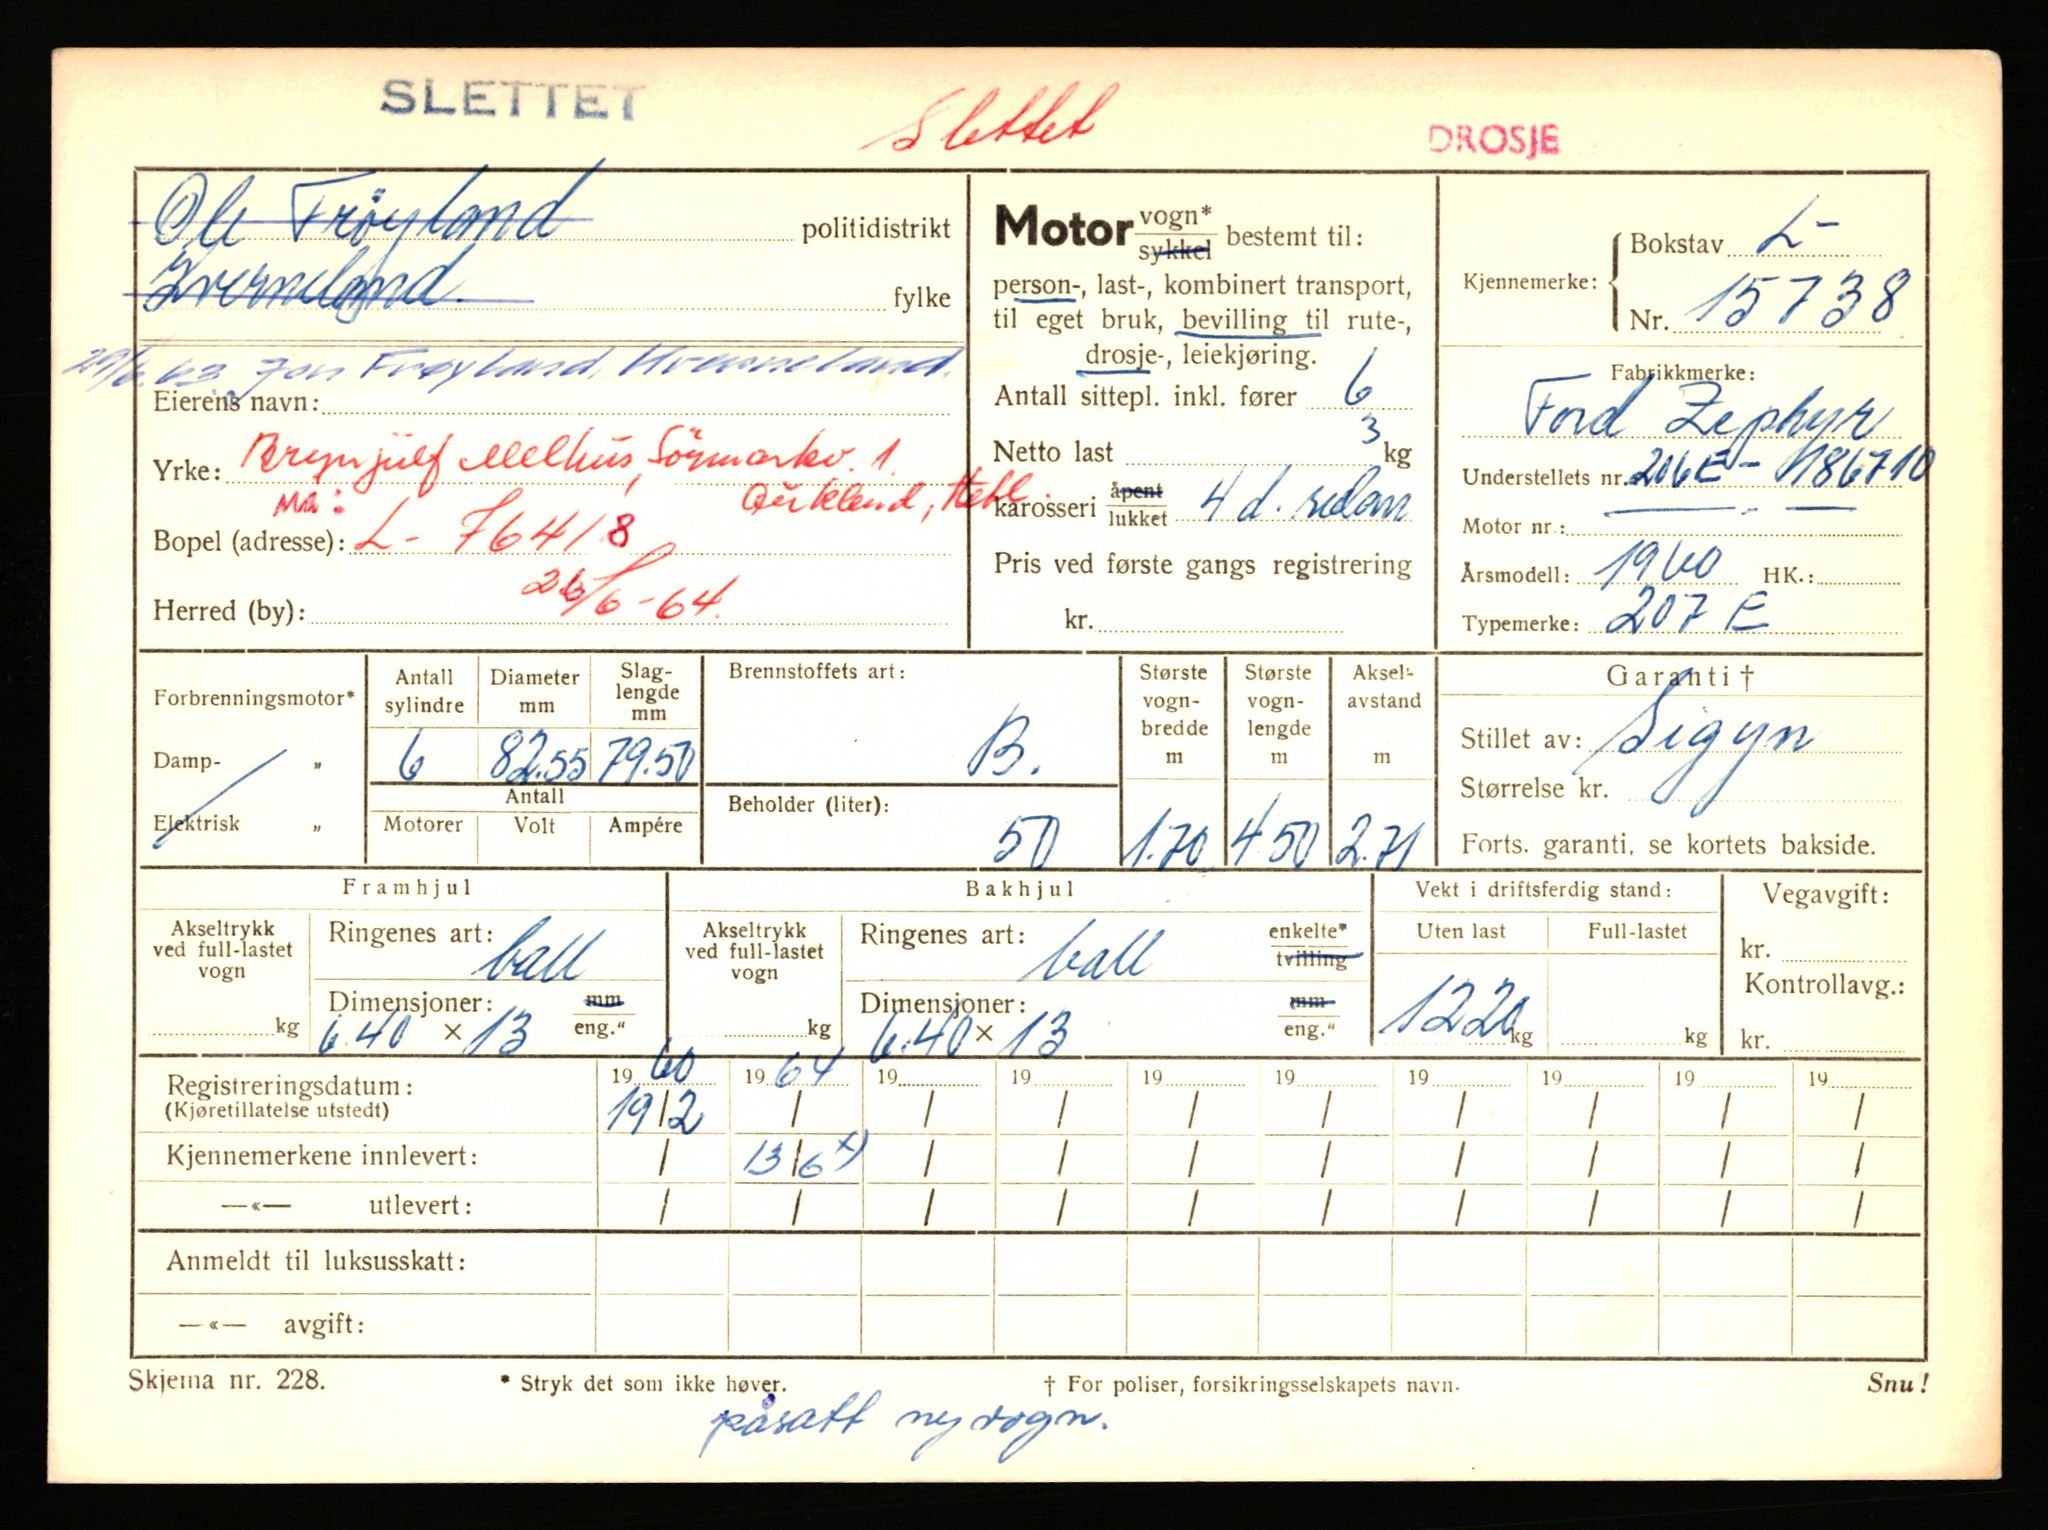 SLETTET
Slettet
DROSJE
Ole Frøyland politidistrikt
Kverneland. fylke
29/6.63 Jon Frøyland, Kverneland.
Eierens navn:
Yrke: Brynjulf Melhus, Sörmarkv. 1.
Auklend, Hetl.
Ma:
Bopel (adresse): L- 76418
26/6-64.
Herred (by):
Motor vogn* / sykkel bestemt til:
person-, last-, kombinert transport,
til eget bruk, bevilling til rute-,
drosje-, leiekjøring.
Antall sittepl. inkl. fører 6
3
Netto last kg
karosseri åpent / lukket 4 d. sedan
Pris ved første gangs registrering
kr.
Kjennemerke: Bokstav L-
Nr. 15738
Fabrikkmerke:
Ford Zephyr
Understellets nr. 206E - 186710
Motor nr.: — " —
Årsmodell: 1960 HK.:
Typemerke: 207 E
Forbrenningsmotor*
Damp- "
Elektrisk "
Antall sylindre Diameter mm Slag-lengde mm
6 82.55 79.50
Antall
Motorer Volt Ampére
Brennstoffets art:
B.
Beholder (liter):
50
Største vogn-bredde m Største vogn-lengde m Aksel-avstand m
1.70 4.50 2.71
Garanti †
Stillet av: Sigyn
Størrelse kr.
Forts. garanti, se kortets bakside.
Framhjul
Akseltrykk ved full-lastet vogn
kg
Ringenes art: ball
Dimensjoner: mm
6.40 × 13 eng."
Bakhjul
Akseltrykk ved full-lastet vogn
kg
Ringenes art: ball enkelte* / tvilling
Dimensjoner: mm
6.40 × 13 eng."
Vekt i driftsferdig stand:
Uten last Full-lastet
1220 kg kg
Vegavgift:
kr.
Kontrollavg.:
kr.
19 60 19 64 19 19 19 19 19 19 19 19
Registreringsdatum: 19/2 / / / / / / / / /
(Kjøretillatelse utstedt)
Kjennemerkene innlevert: / 13/6 x) / / / / / / / /
—«— utlevert: / / / / / / / / / /
Anmeldt til luksusskatt:
—«— avgift:
Skjema nr. 228. * Stryk det som ikke høver. † For poliser, forsikringsselskapets navn. Snu!
påsatt ny vogn.